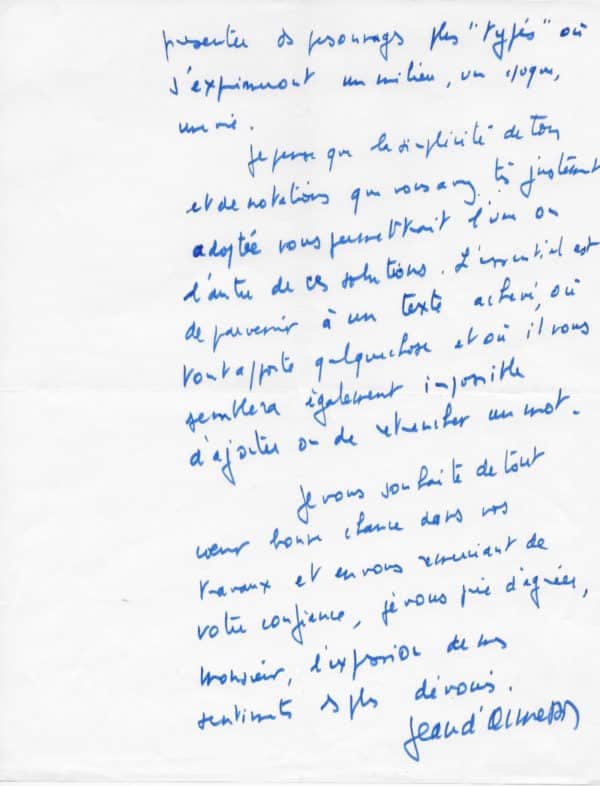 présenter des personnages plus "typés" où
s'exprimeront un milieu, une époque,
une vie.
Je pense que la simplicité de ton
et de notations que vous avez très justement
adoptée vous permettrait l'une ou
l'autre de ces solutions. L'essentiel est
de parvenir à un texte achevé, où
tout apporte quelque chose et où il vous
semblera également impossible
d'ajouter ou de retrancher un mot.
Je vous souhaite de tout
cœur bonne chance dans vos
travaux et en vous remerciant de
votre confiance, je vous prie d'agréer,
Monsieur, l'expression de mes
sentiments les plus dévoués.
Jean d'Ormesson